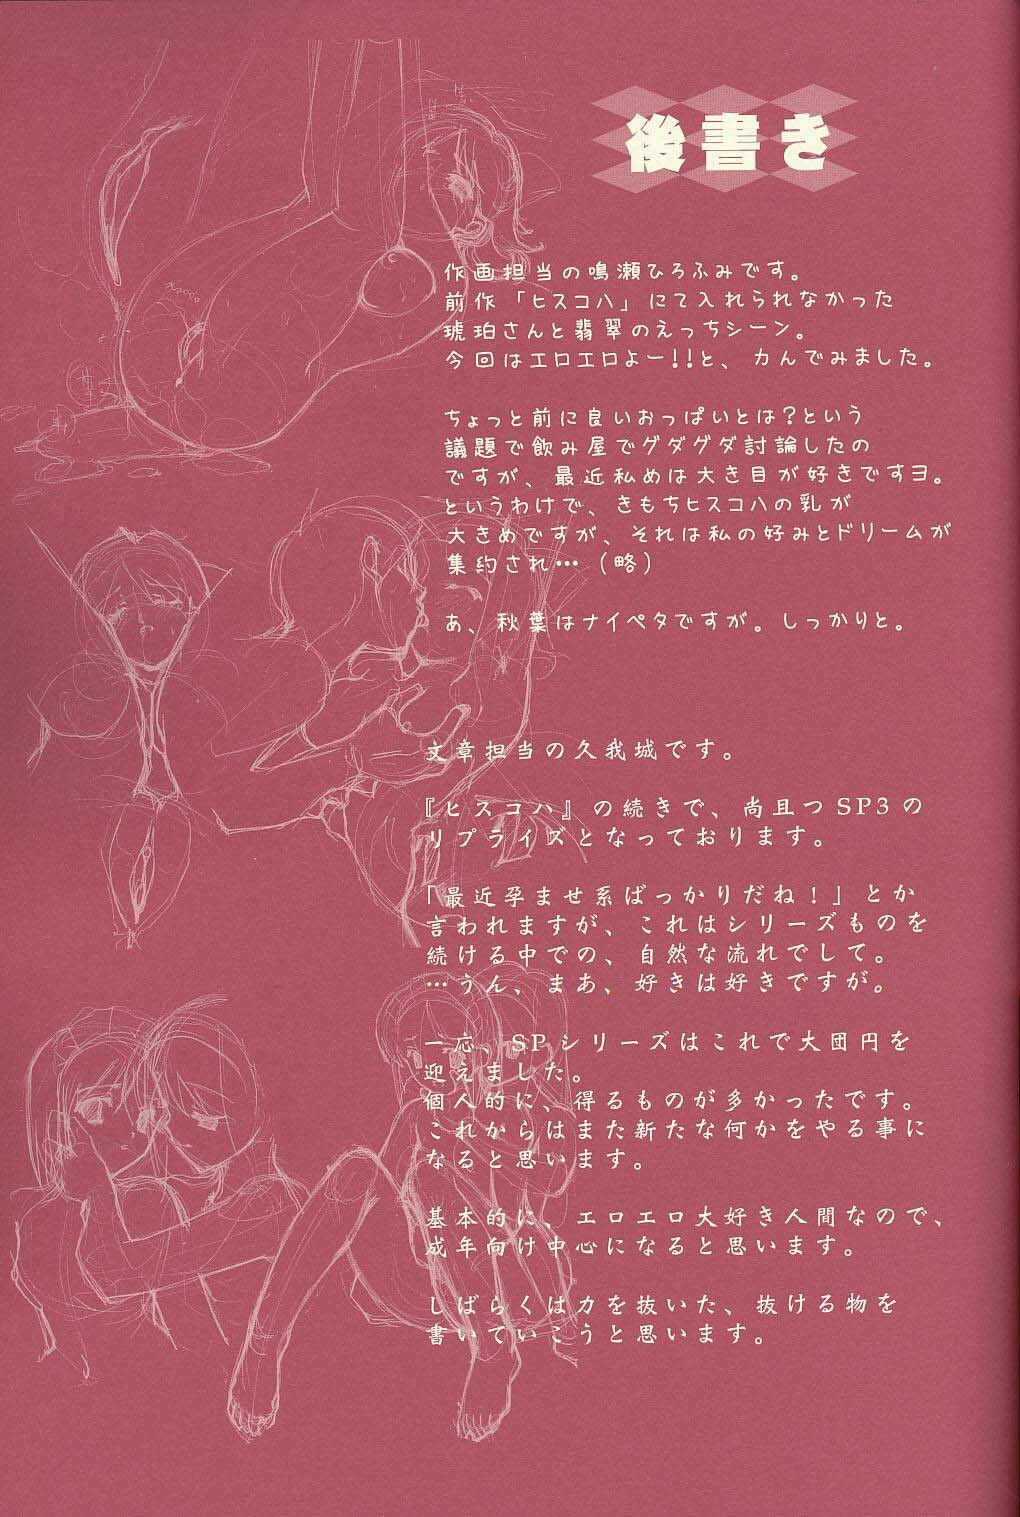 後書き
作画担当の鳴瀬ひろふみです。
前作「ヒスコハ」にて入れられなかった
琥珀さんと翡翠のえっちシーン。
今回はエロエロよー!!と、力んでみました。
ちょっと前に良いおっぱいとは?という
議題で飲み屋でグダグダ討論したの
ですが、最近私めは大き目が好きですヨ。
というわけで、きもちヒスコハの乳が
大きめですが、それは私の好みとドリームが
集約され…(略)
あ、秋葉はナイペタですが。しっかりと。
文章担当の久我城です。
『ヒスコハ』の続きで、尚且つSP3の
リプライズとなっております。
「最近孕ませ系ばっかりだね!」とか
言われますが、これはシリーズものを
続ける中での、自然な流れでして。
…うん、まあ、好きは好きですが。
一応、SPシリーズはこれで大団円を
迎えました。
個人的に、得るものが多かったです。
これからはまた新たな何かをやる事に
なると思います。
基本的に、エロエロ大好き人間なので、
成年向け中心になると思います。
しばらくは力を抜いた、抜ける物を
書いていこうと思います。